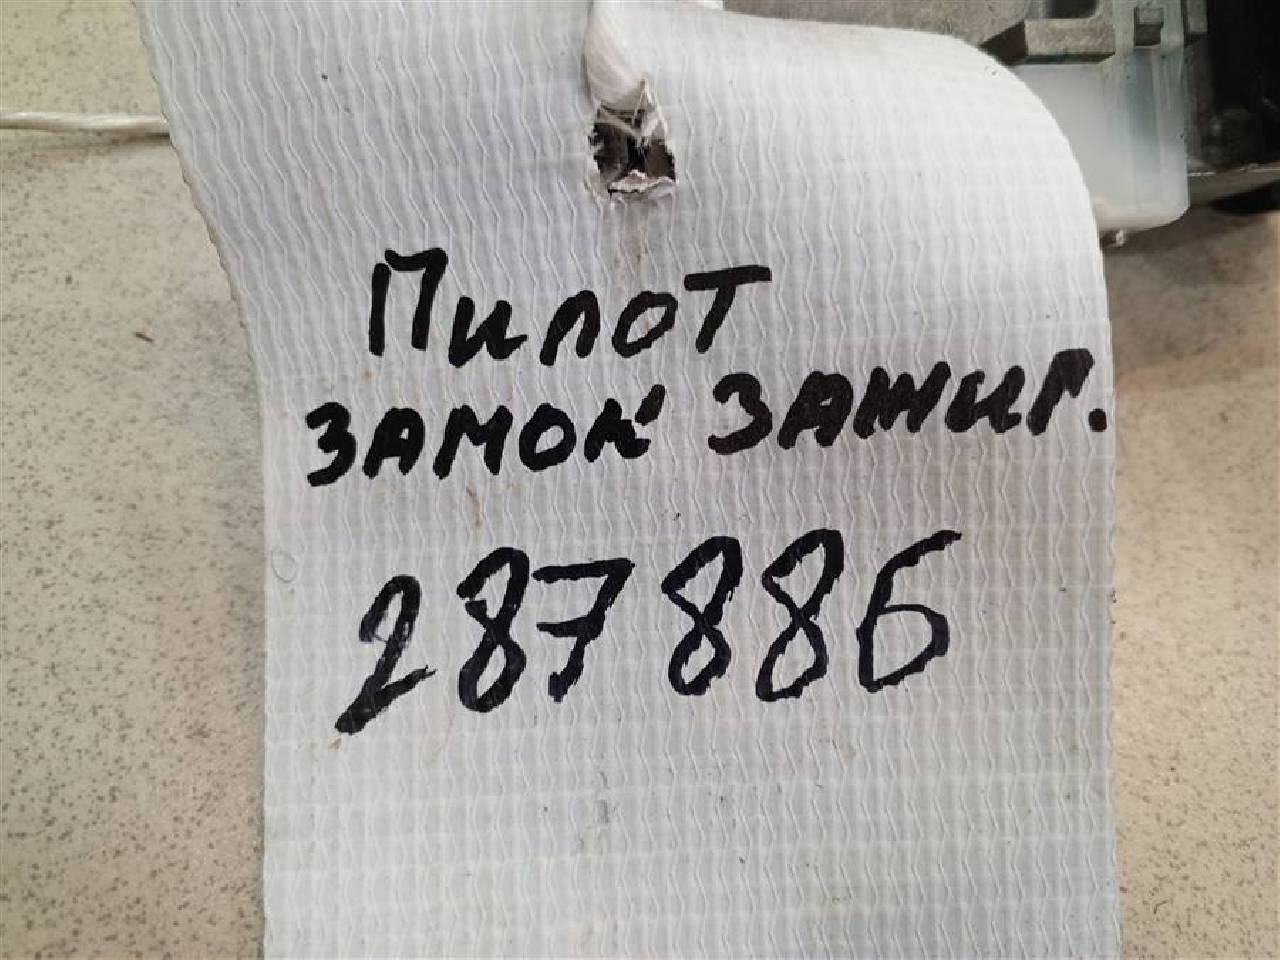 Пилот
замок зажиг.
287886